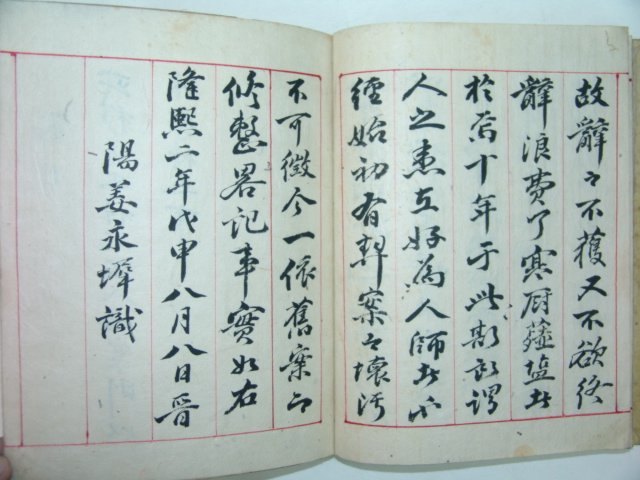 故辭々不獲又不欲終
辭浪費了寒厨薤塩者
於焉十年于此斯所謂
人之患在好為人師者而
經始初有契案々壞汚
不可徵今一依舊案而
修整畧記事實如右
隆熙二年戊申八月八日晉
陽姜永墀識